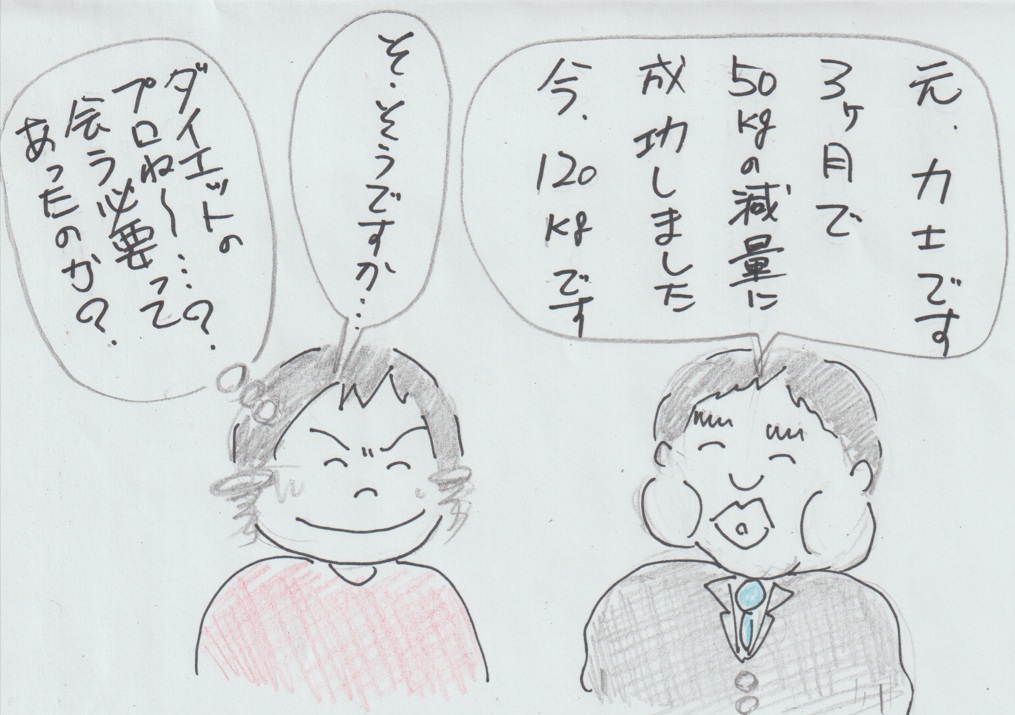 元、力士です
3ヶ月で
50kgの減量に
成功しました
今、120kgです
そ、そうですか…
ダイエットの
プロね～…?
会う必要って
あったのか?